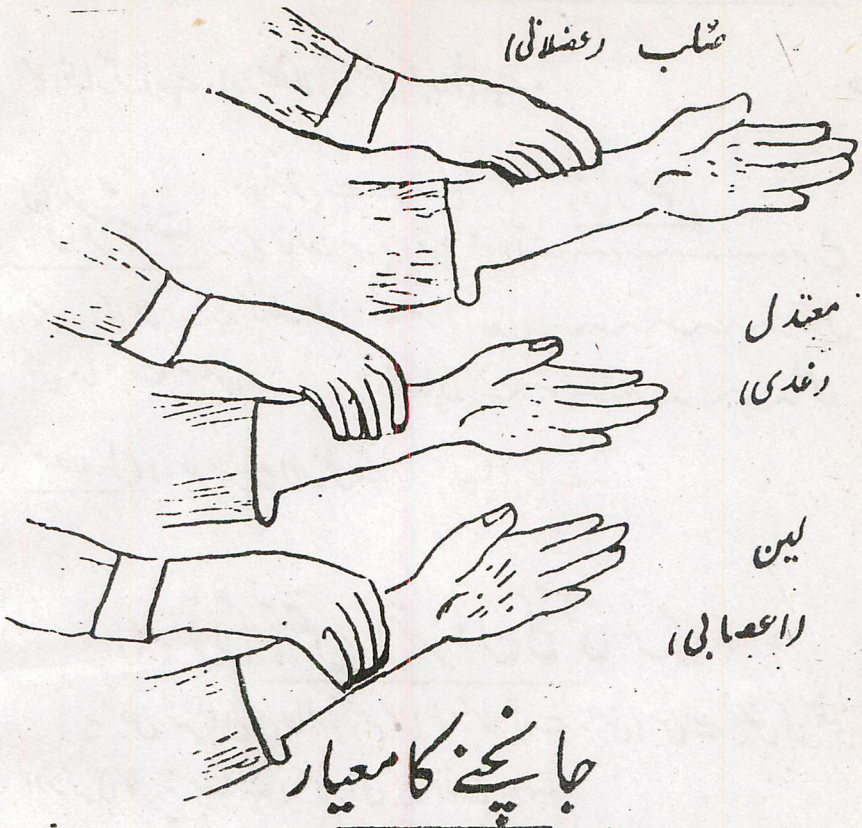 صلب (عضلاتی)
معتدل
(غدی)
لین
(اعصابی)
جانچنے کا معیار